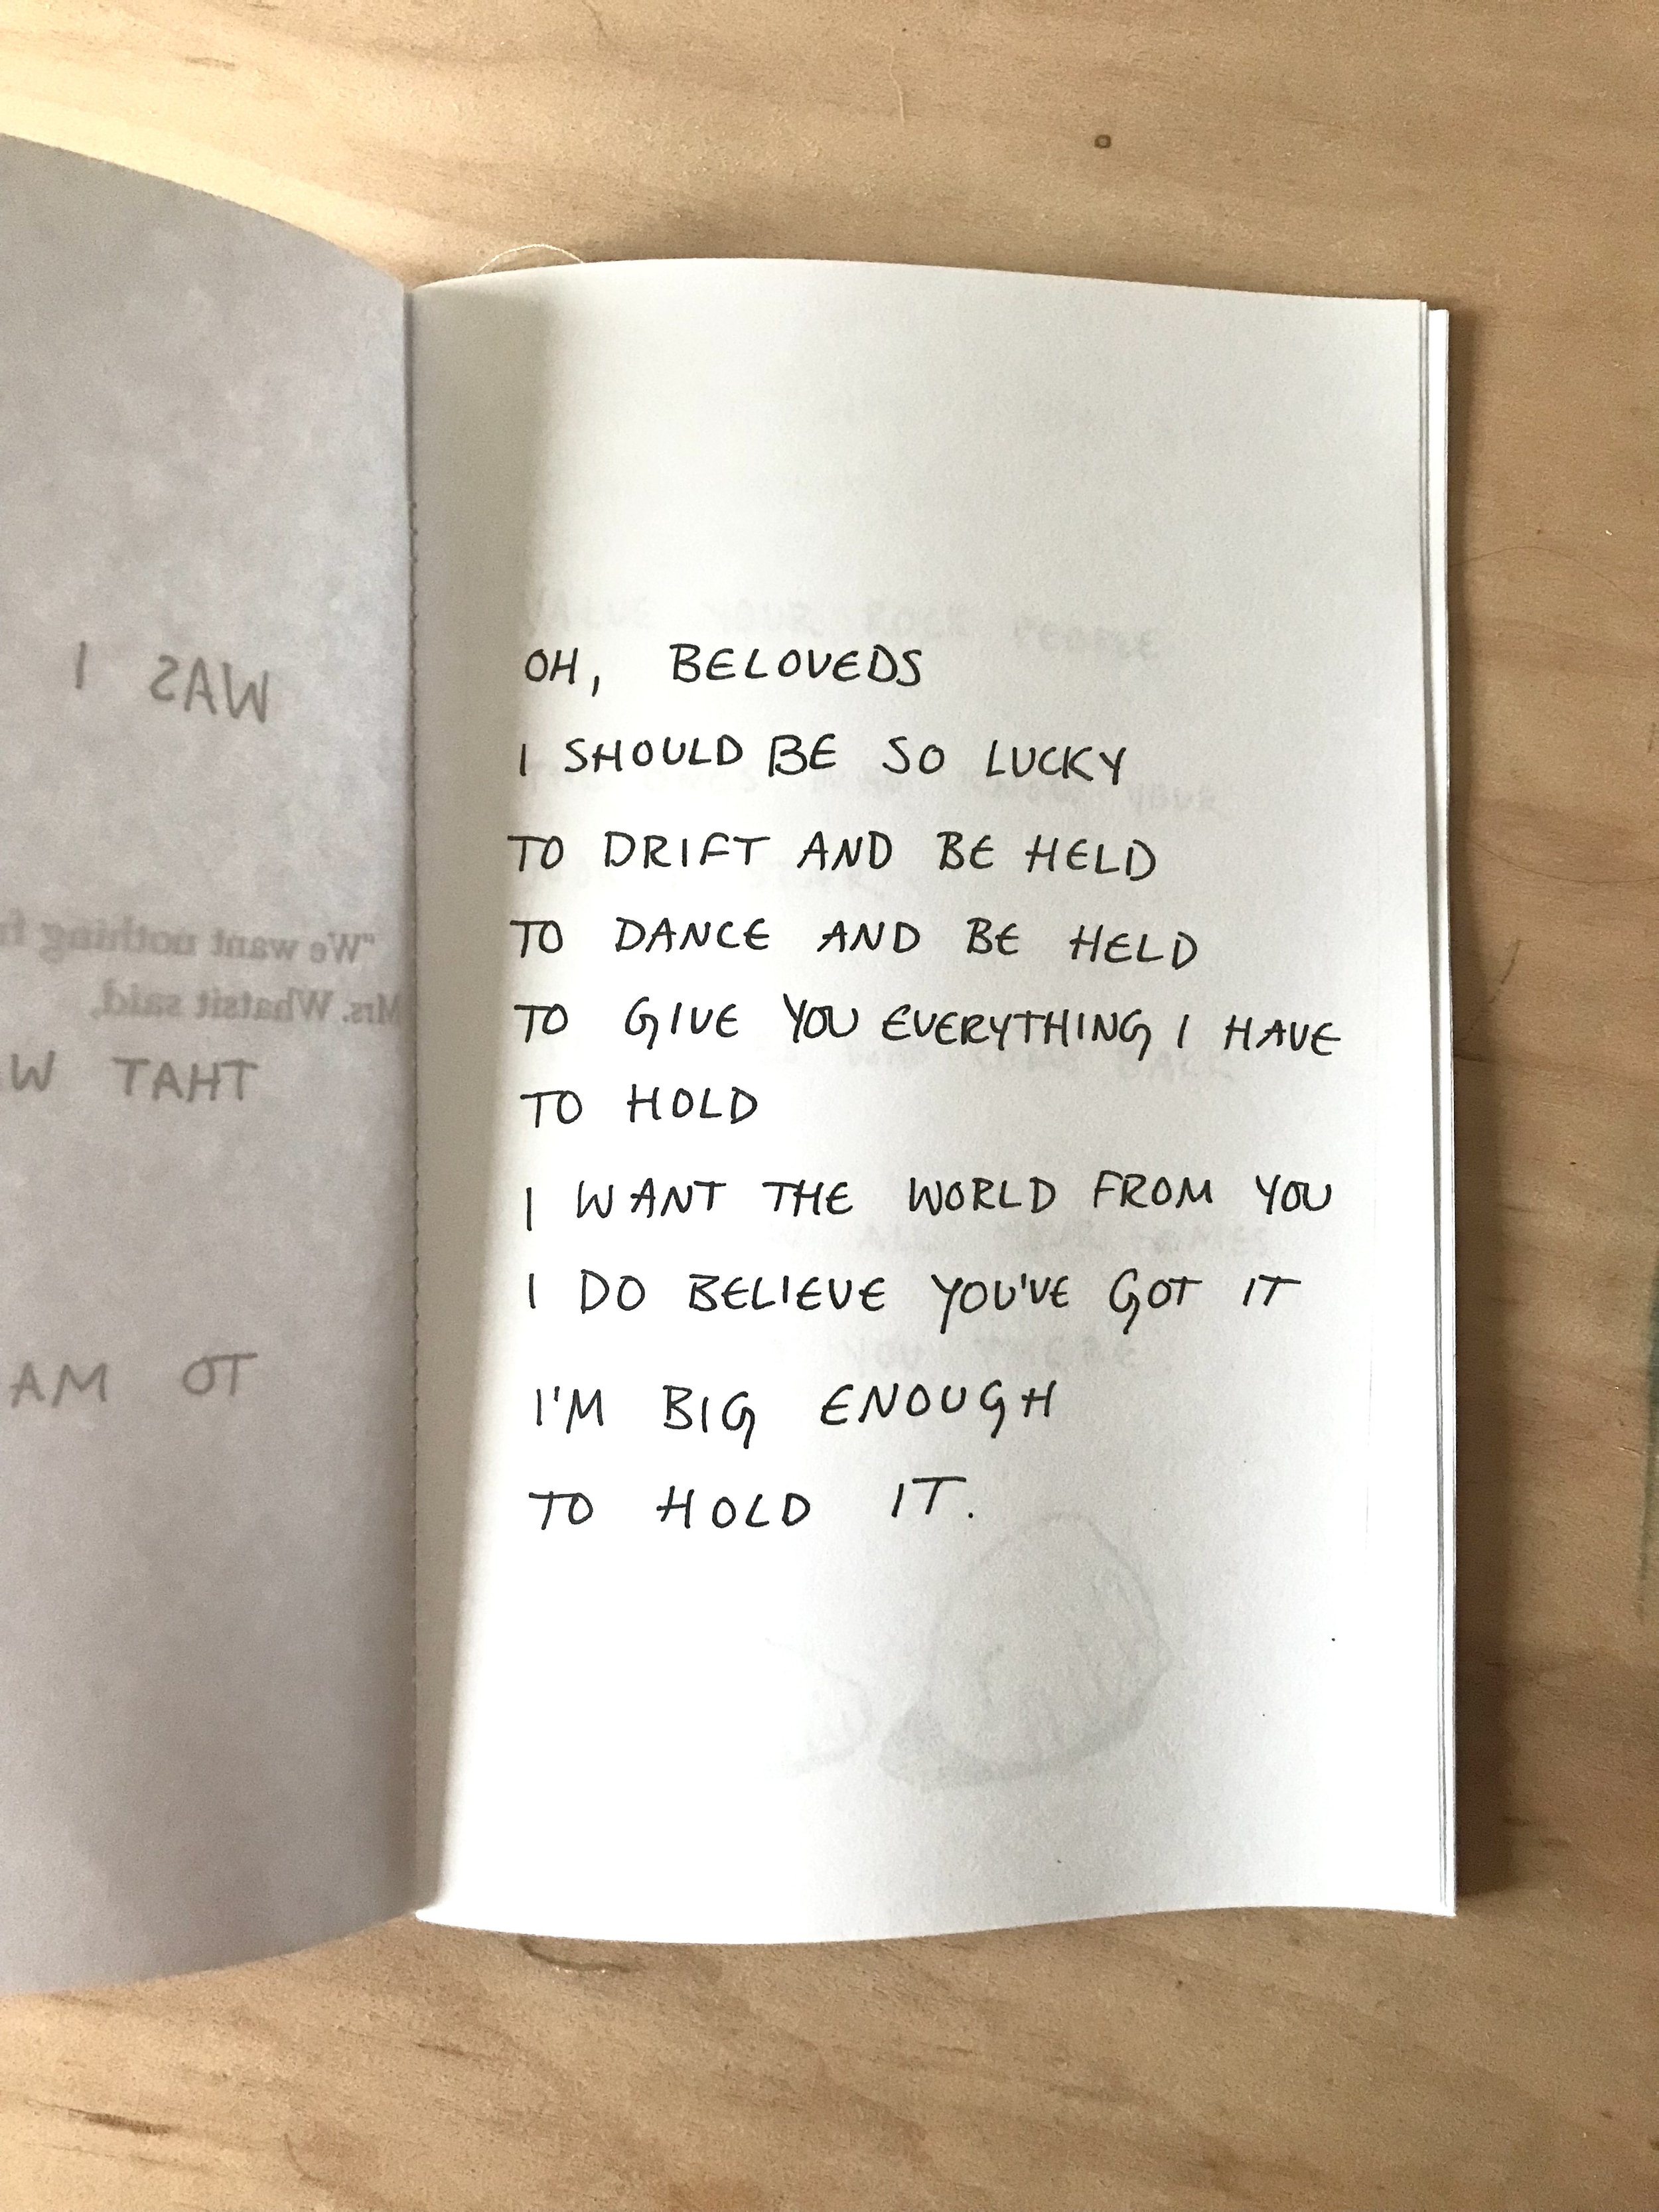 OH, BELOVEDS
I SHOULD BE SO LUCKY
TO DRIFT AND BE HELD
TO DANCE AND BE HELD
TO GIVE YOU EVERYTHING I HAVE
TO HOLD
I WANT THE WORLD FROM YOU
I DO BELIEVE YOU'VE GOT IT
I'M BIG ENOUGH
TO HOLD IT.